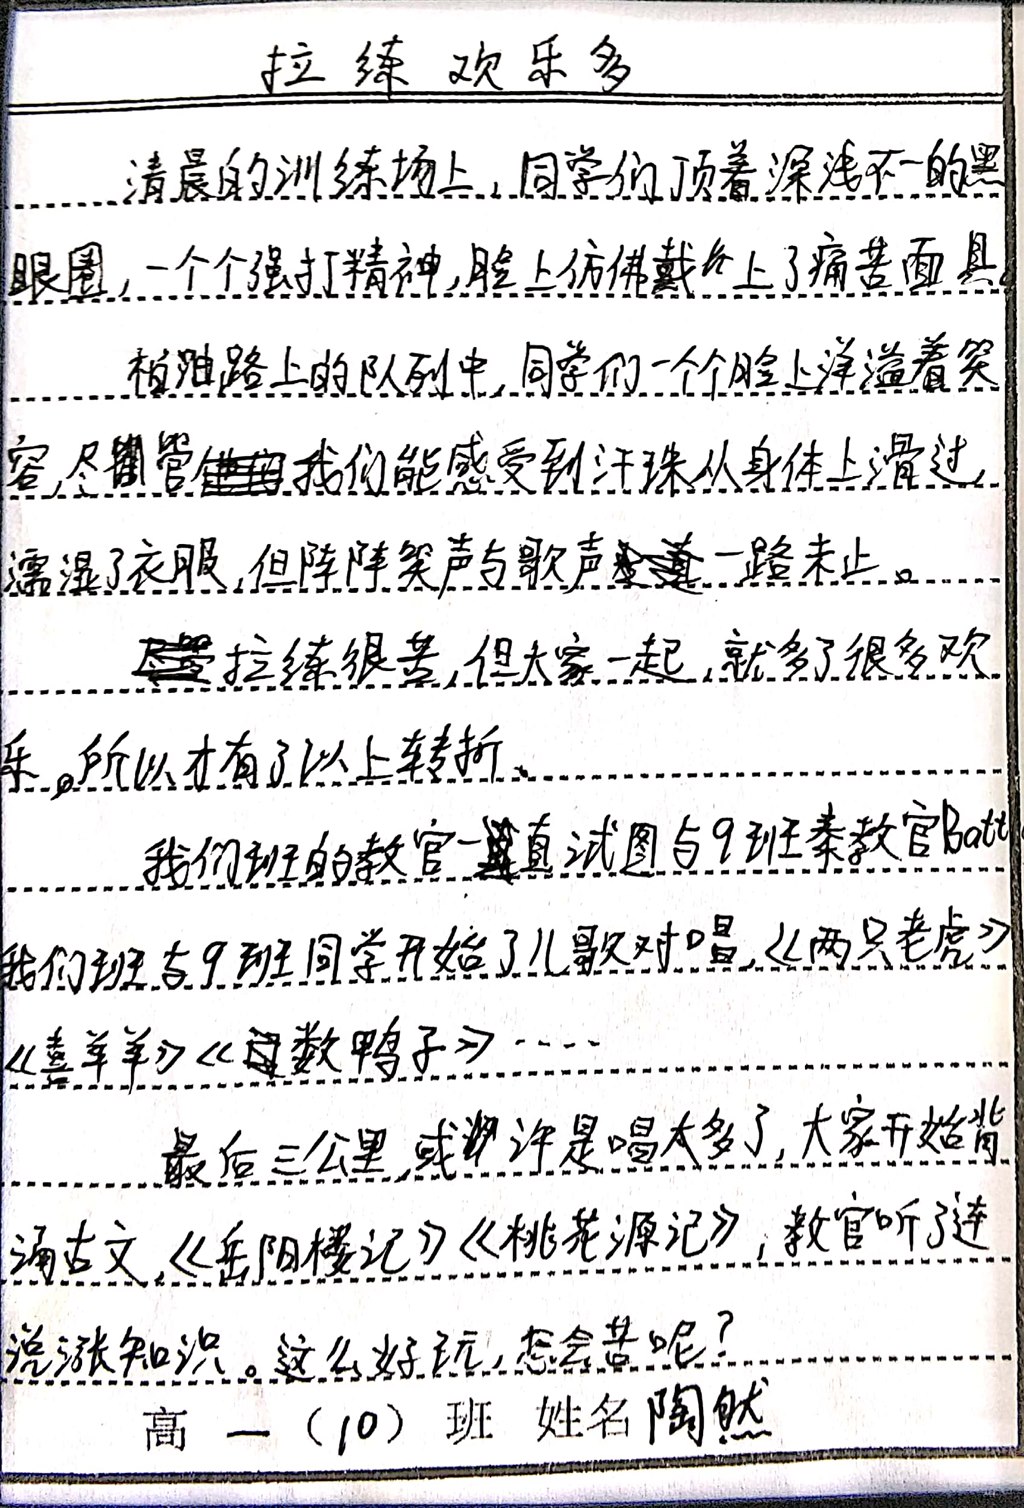 拉练欢乐多
清晨的训练场上，同学们顶着深浅不一的黑
眼圈，一个个强打精神，脸上仿佛戴上了痛苦面具。
柏油路上的队列中，同学们一个个脸上洋溢着笑
容，尽管我们能感受到汗珠从身体上滑过，
濡湿了衣服，但阵阵笑声与歌声一路未止。
拉练很苦，但大家一起，就多了很多欢
乐。所以才有了以上转折。
我们班的教官一直试图与9班秦教官Batt
我们班与9班同学开始了儿歌对唱，《两只老虎》
《喜羊羊》《数鸭子》……
最后三公里，或许是唱太多了，大家开始背
诵古文，《岳阳楼记》《桃花源记》，教官听了连
说涨知识。这么好玩，怎会苦呢？
高一（10）班 姓名陶然